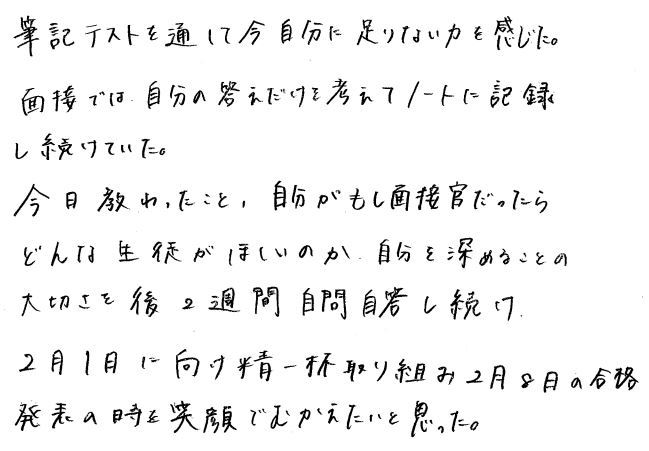 筆記テストを通して今自分に足りない力を感じた。
面接では自分の答えだけを考えてノートに記録
し続けていた。
今日教わったこと、自分がもし面接官だったら
どんな生徒がほしいのか、自分を深めることの
大切さを後2週間自問自答し続け、
2月1日に向け精一杯取り組み2月8日の合格
発表の時を笑顔でむかえたいと思った。